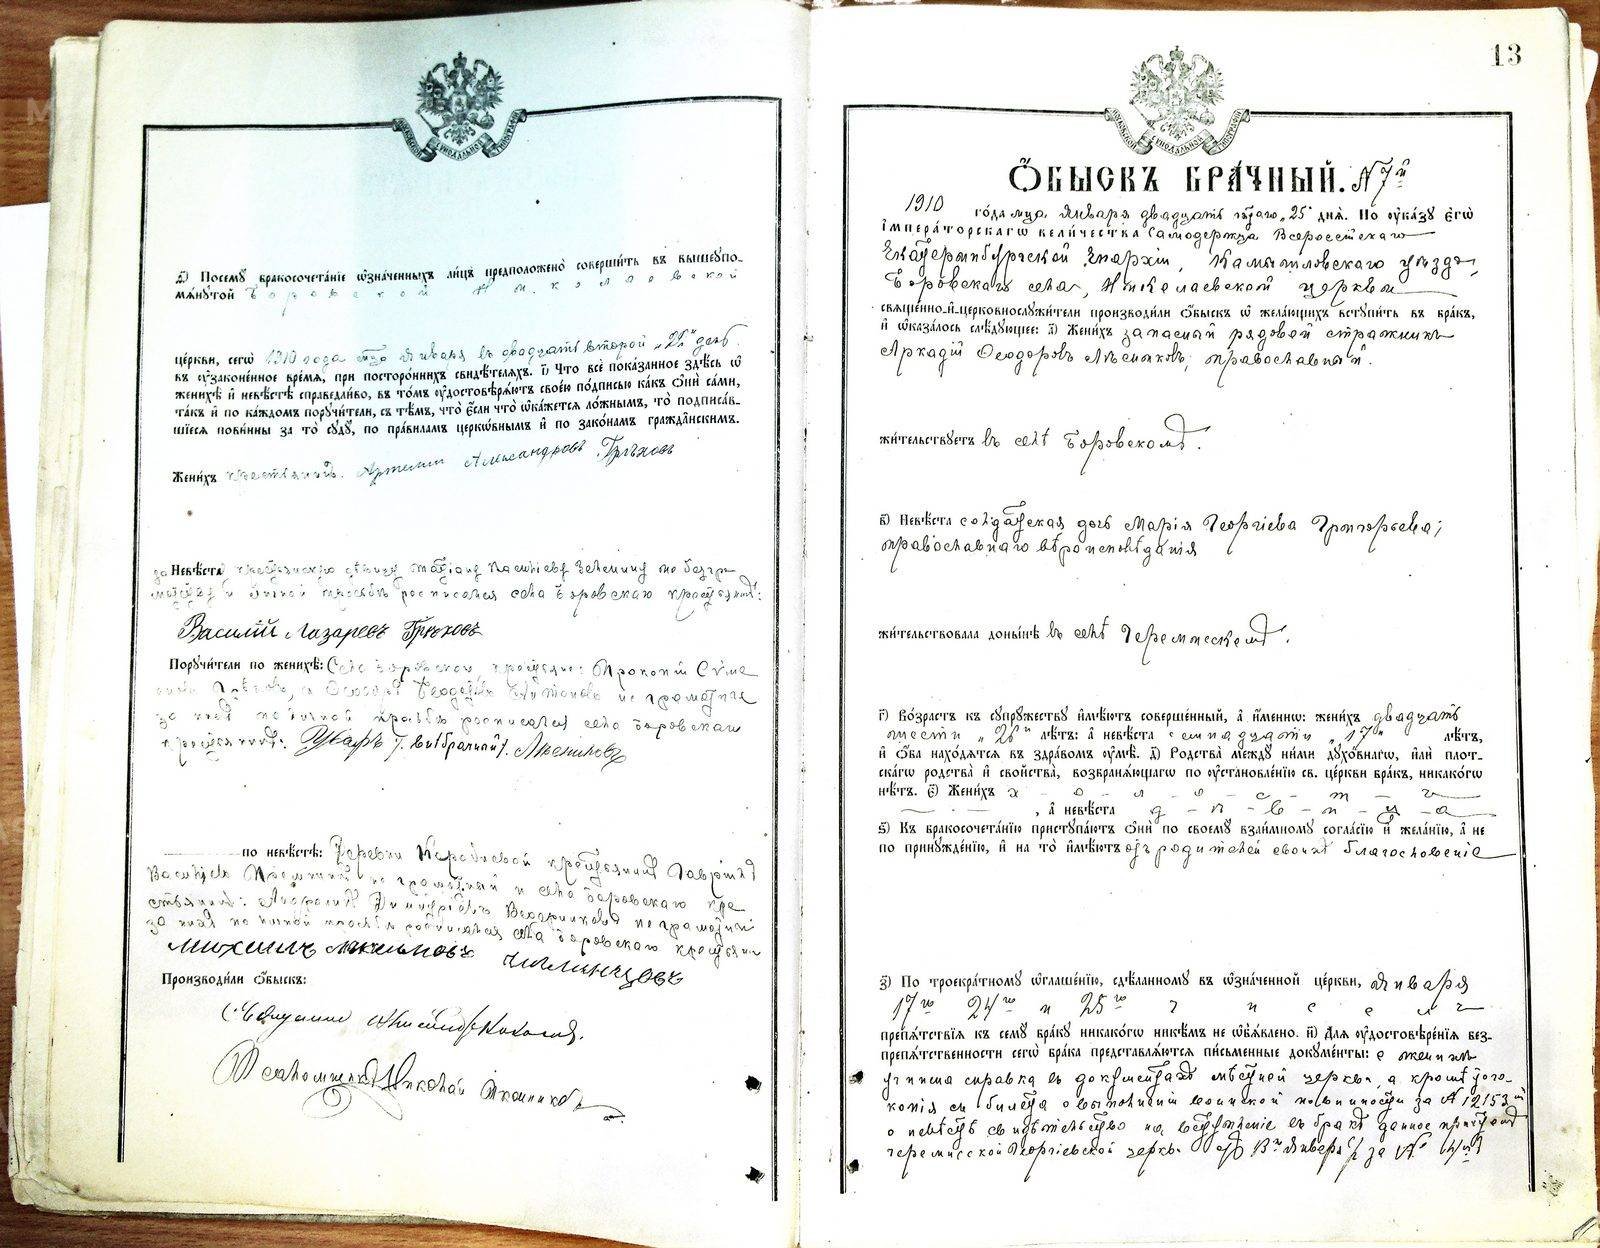 МОСКОВСКОЙ СѴНОДАЛЬНОЙ ТИПОГРАФІИ
д҃) Посему̀ бракосочета́нїе ѡ҆зна́ченныхъ ли́цъ предположено̀ соверши́ть въ вышеупо-
мѧ́нутой Боровской Николаевской
це́ркви, сегѡ̀ 1910 года мца Января въ двадцать второй „22" день
въ ѹ҆зако́ненное вре́мѧ, при посторо́ннихъ свидѣ́телѧхъ. і҃) Что̀ всѐ пока́занное здѣ́сь ѡ҆
женихѣ̀ и҆ невѣ́стѣ справедли́во, въ то́мъ ѹ҆достовѣрѧ́ютъ свое́ю по́дписью ка́къ ѻ҆нѝ са́ми,
та́къ и҆ по ка́ждомъ поручи́тели, съ тѣ́мъ, что̀ є҆́сли что̀ ѡ҆ка́жетсѧ ло́жнымъ, то̀ подписа́в-
шїесѧ пови́нны за то̀ сѹдѹ̀, по пра́виламъ церкѡ́внымъ и҆ по зако́намъ гражда́нскимъ.
Жени́хъ крестьянинъ Артемий Александровъ Грѣховъ
за Невѣ́ста крестьянскую дѣвицу Васильеву по безгра-
мотству и личной просьбѣ росписался села Боровскаго крестьянинъ:
Василій Лазаревъ Грѣховъ
Поручи́тели по женихѣ̀: Села Боровскаго, крестьяне: Прокопій
Ѳеодоръ не грамотные
за нихъ по личной просьбѣ росписался села Боровскаго
крестьянинъ: Уваръ Лѣсниковъ
по невѣ́стѣ: Деревни крестьянинъ Гавріилъ
Васильевъ не грамотный и села Боровскаго кре-
стьянинъ: Димитріевъ не грамотный
за нихъ по личной просьбѣ росписался села Боровскаго крестьянинъ
Михаилъ
Производи́ли ѻ҆́быскъ:
Священникъ
Псаломщикъ Николай
13
МОСКОВСКОЙ СѴНОДАЛЬНОЙ ТИПОГРАФІИ
Ѻ҆́БЫСКЪ БРА́ЧНЫЙ. N 7й
1910 го́да мца Января двадцать пятаго „25" днѧ̀. По ѹ҆ка́зѹ Є҆гѡ̀
І҆мпера́торскагѡ вели́чества Самодержца Всероссійскаго
Екатеринбургской Епархіи, Камышловскаго уѣзда,
Боровскаго села, Николаевской церкви
свѧще́нно-и҆-церковнослѹжи́тели производи́ли ѻ҆́быскъ ѡ҆ жела́ющихъ встѹпи́ть въ бра́къ,
и҆ ѡ҆каза́лось слѣ́дѹющее: а҃) Жени́хъ запасный рядовой стражникъ
Аркадій Ѳеодоровъ Лѣсниковъ, православный.
жи́тельствѹетъ въ селѣ Боровскомъ.
в҃) Невѣ́ста солдатская дочь Марія Георгіева Григорьева;
православнаго вѣроисповѣданія
жи́тельствовала доны́нѣ въ селѣ Черемисскомъ.
г҃) Во́зрастъ къ сѹпрѹ́жествѹ и҆мѣ́ютъ соверше́нный, а҆ и҆́меннѡ: жени́хъ двадцать
шести „26" лѣ́тъ: а҆ невѣ́ста семнадцати „17" лѣ́тъ,
и҆ ѻ҆́ба нахо́дѧтсѧ въ здра́вомъ ѹ҆мѣ̀. д҃) Родства̀ междѹ ни́ми дѹхо́внагѡ, и҆лѝ пло́т-
скагѡ родства̀ и҆ сво́йства, возбранѧ́ющагѡ по ѹ҆становле́нїю св. це́ркви бра́къ, никако́гѡ
нѣ́тъ. є҃) Жени́хъ х - о - л - о - с - т - ъ
, а҆ невѣ́ста д - ѣ - в - и - ц - а
ѕ҃) Къ бракосочета́нїю пристѹпа́ютъ ѻ҆нѝ по своемѹ̀ взаи́мномѹ согла́сїю и҆ жела́нїю, а҆ не
по принѹжде́нїю, и҆ на то̀ и҆мѣ́ютъ отъ родителей своихъ благословеніе
з҃) По троекра́тномѹ ѡ҆глаше́нїю, сдѣ́ланномѹ въ ѡ҆зна́ченной це́ркви, Января
17го 24го и 25го ч и с е л ъ
препѧ́тствїѧ къ семѹ̀ бра́кѹ никако́гѡ никѣ́мъ не ѡ҆б̾ѧ́влено. и҃) Длѧ̀ ѹ҆достовѣре́нїѧ без-
препѧ́тственности сегѡ̀ бра́ка представлѧ́ютсѧ пи́сьменные докѹме́нты: о жени-
хѣ справка въ документахъ мѣстной церкви, а кромѣ того-
копія съ билета о выполненіи воинской повинности за N 12153й
о невѣстѣ свидѣтельство на вступленіе въ бракъ данное причтомъ
Черемисской Георгіевской церкви отъ Января за N